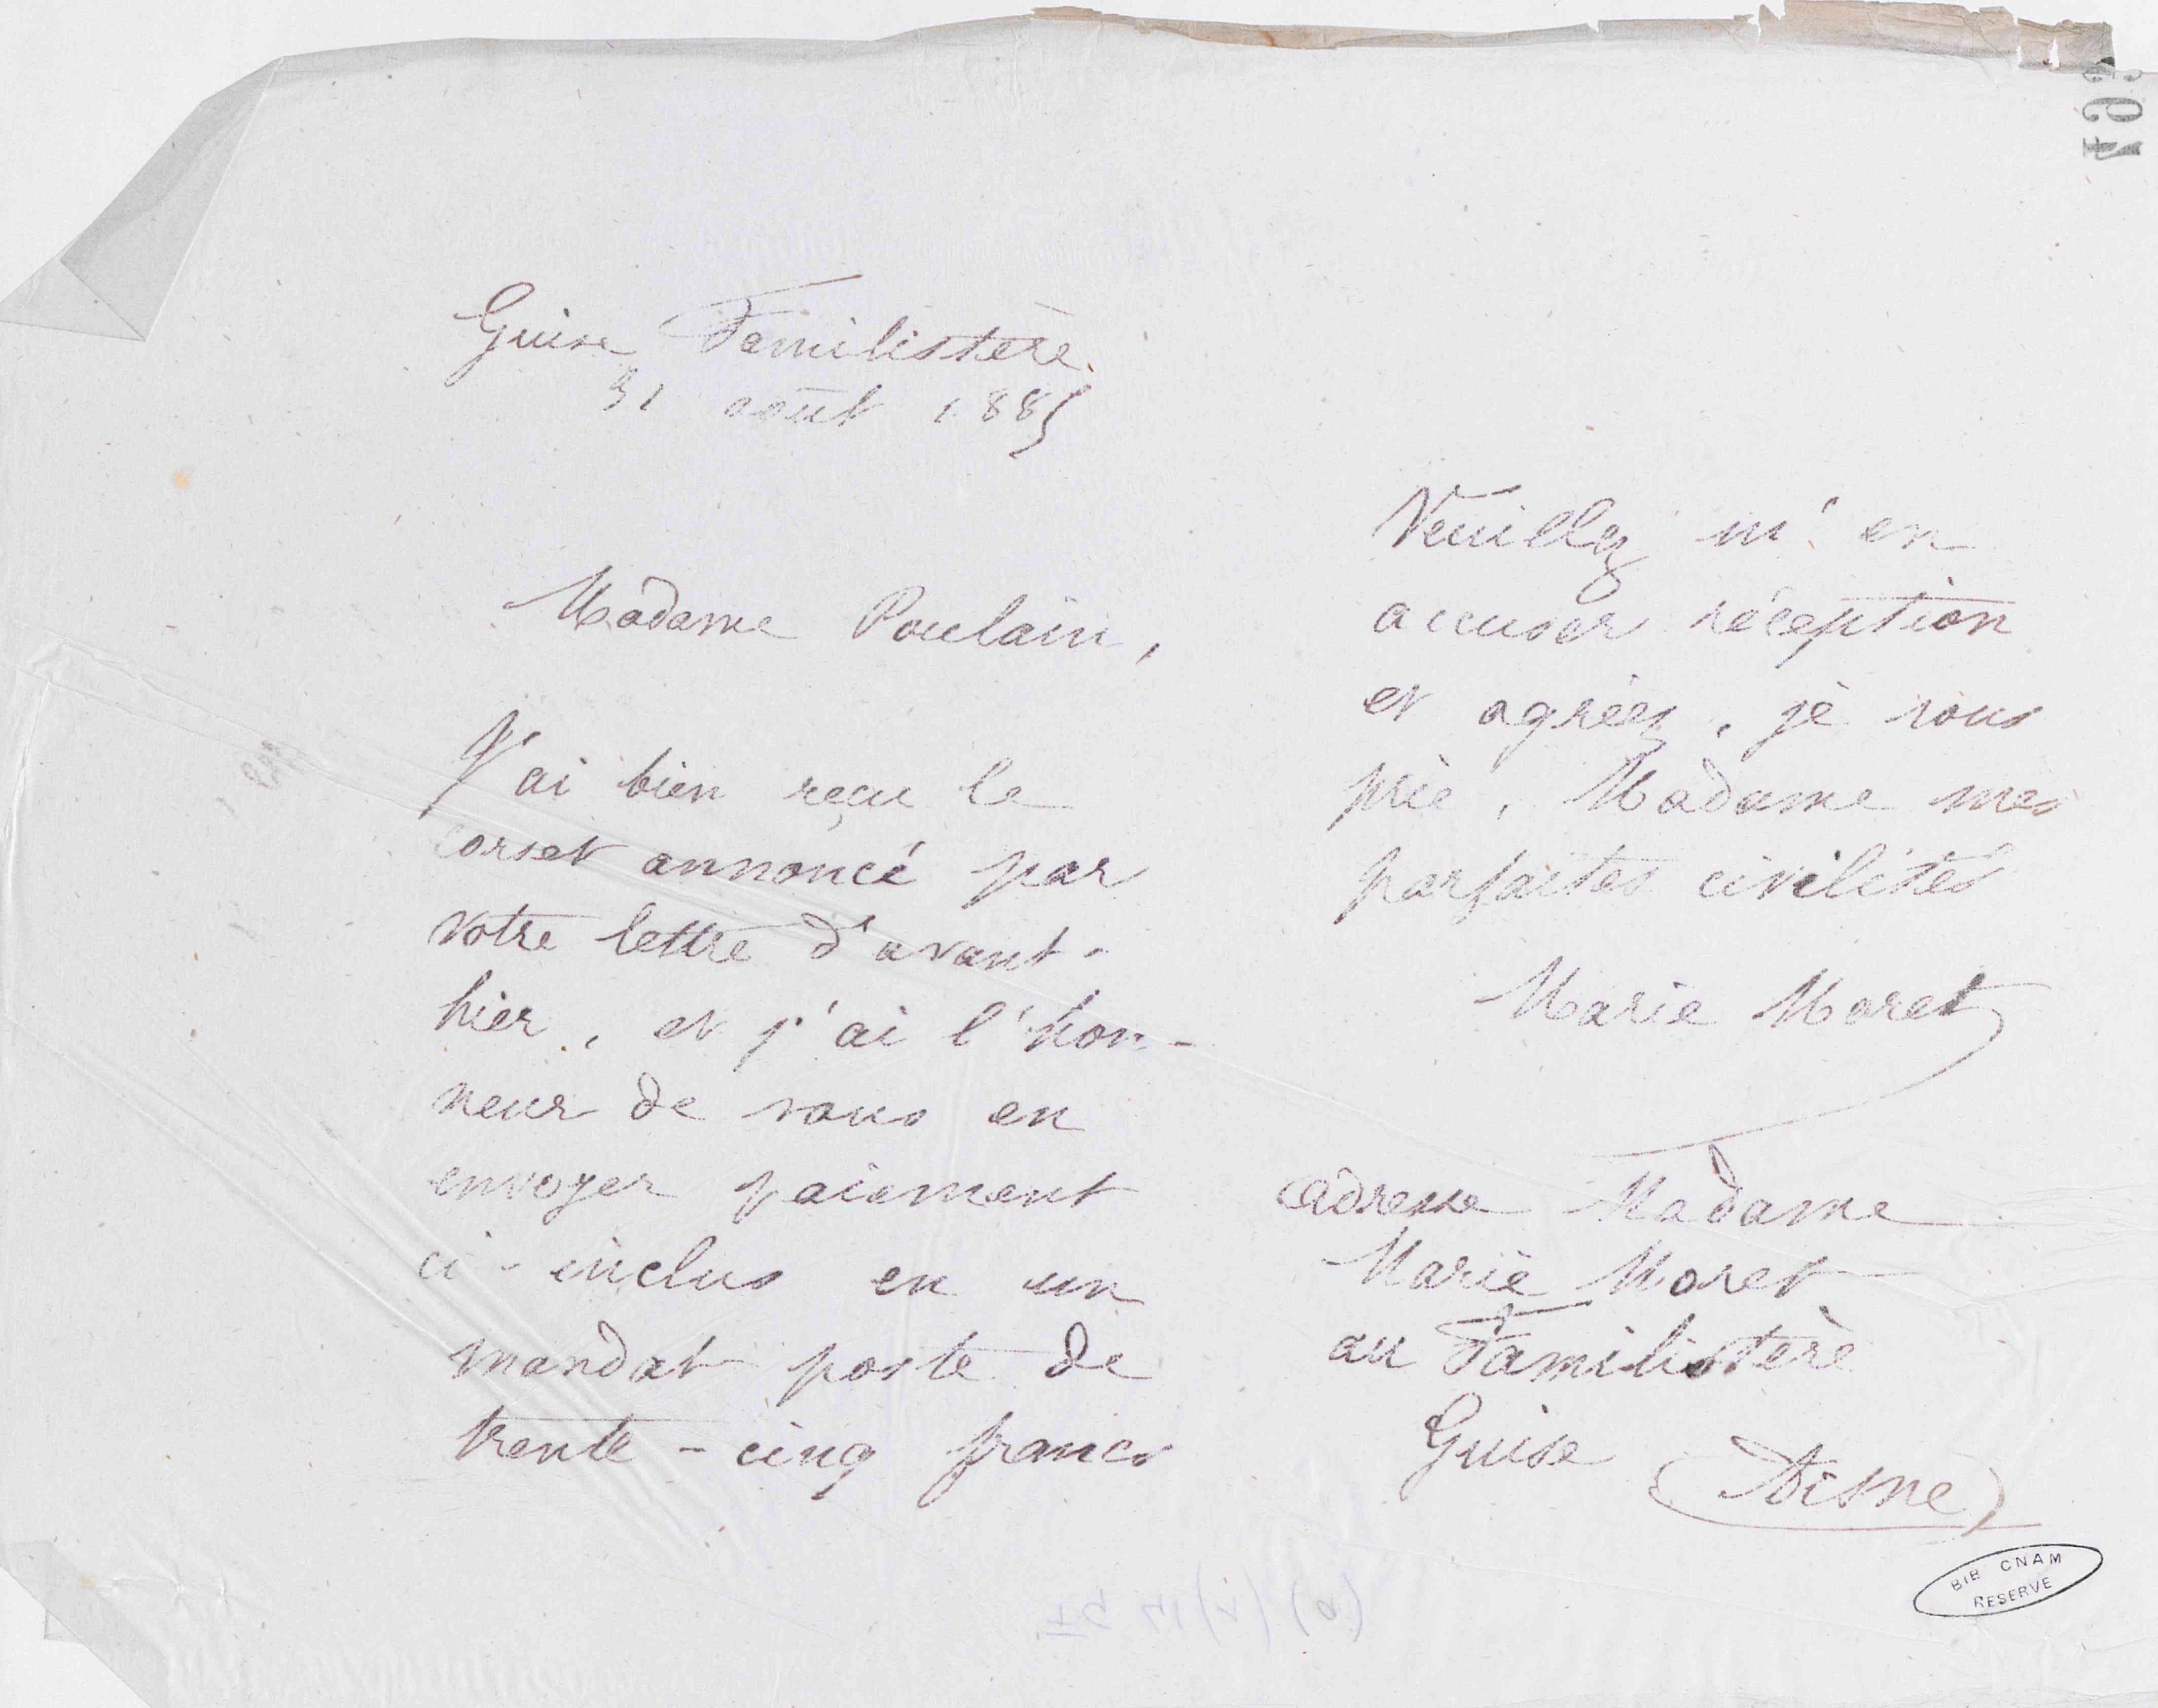 Guise Familistère
31 août 1885
Madame Poulain,
J'ai bien reçu le
corset annoncé par
votre lettre d'avant-
hier, et j'ai l'hon-
neur de vous en
envoyer paiement
ci-inclus en un
mandat poste de
trente-cinq francs
Veuillez m'en
accuser réception
et agréez, je vous
prie, Madame mes
parfaites civilités
Marie Moret
adresse Madame
Marie Moret
au Familistère
Guise (Aisne)
BIB CNAM
RESERVE